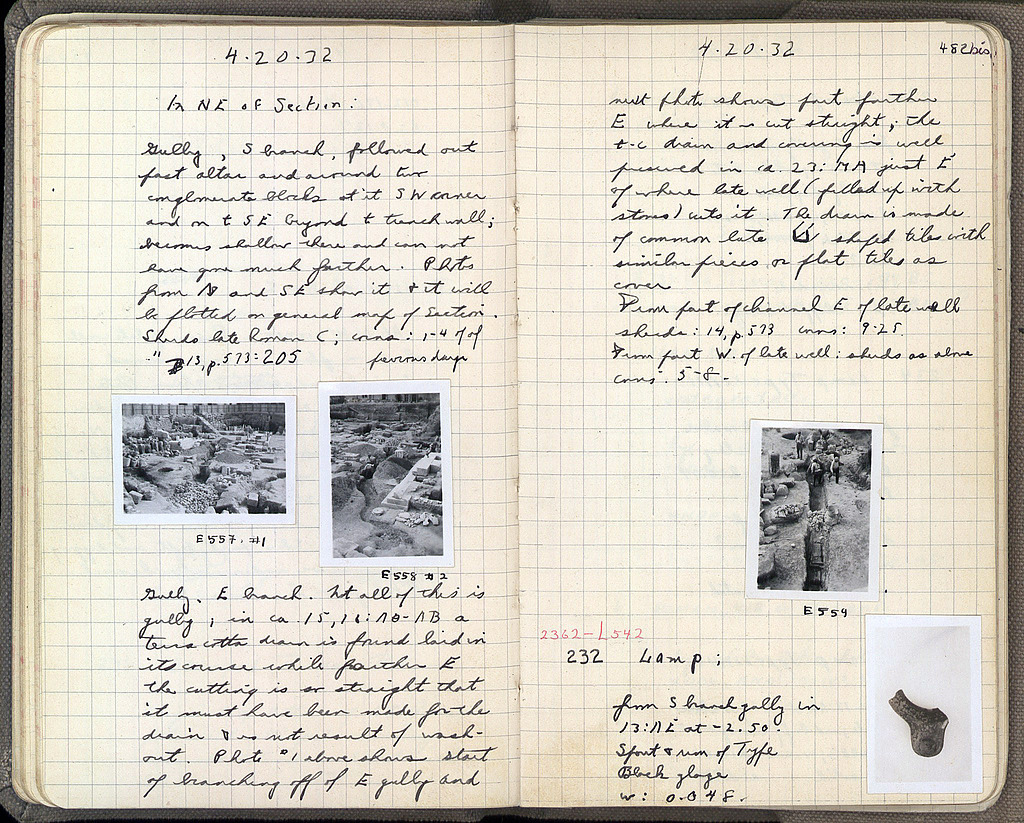 4.20.32
In NE of Section:
Gully, S branch, followed out
past altar and around two
conglomerate blocks at it SW corner
and on t SE beyond t trench wall;
becomes shallow there and can not
have gone much farther. Photos
from N and SE show it & it will
be plotted on general map of Section.
Sherds late Roman C; coins: 1-4 of
previous days
" 13, p. 573: 205
E557. #1
E558 #2
Gully, E branch. Not all of this is
gully; in ca. 15, 16: ΛΘ-ΛΒ a
terra cotta drain is found laid in
its course while farther E
the cutting is so straight that
it must have been made for the
drain & is not result of wash-
out. Photo #1 above shows start
of branching off of E gully and
4.20.32
482bis.
next photo shows part farther
E where it is cut straight; the
t-c drain and covering is well
preserved in ca. 23: MA just E
of where late well (filled up with
stones) cuts it. The drain is made
of common late shaped tiles with
similar pieces or flat tiles as
cover
From part of channel E of late well
sherds: 14, p. 573 coins: 9-25
From part W. of late well: sherds as above
coins: 5-8.
E559
2362-L542
232 Lamp;
from S branch gully in
13: ΛE at -2.50.
Spout & rim of Type
Black glaze
W: 0.048.